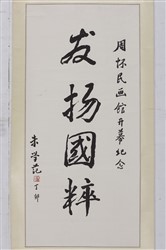 周怀民画馆开幕纪念
发扬國粹
朱学范
丁卯